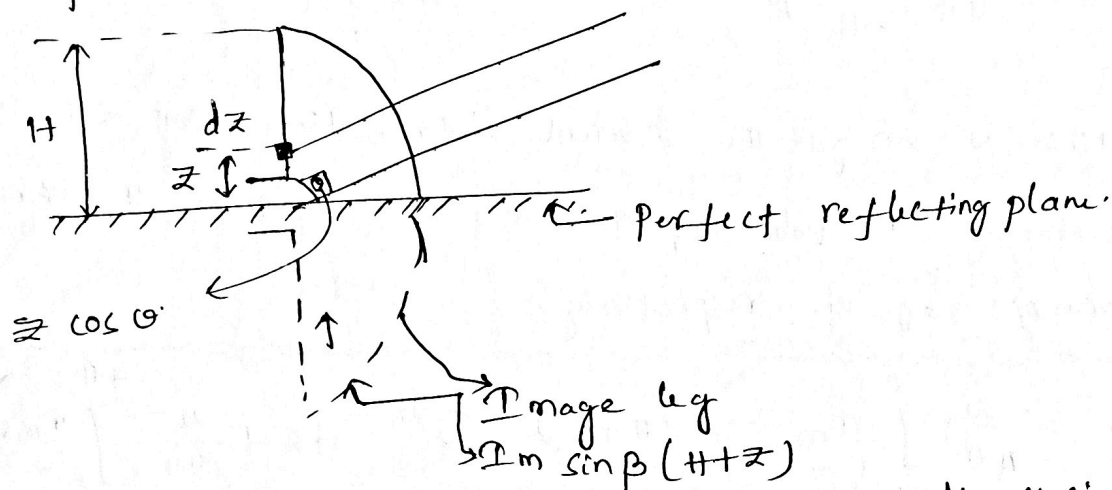 H
dz
z
θ
perfect reflecting plane.
z cos θ
Image leg
Im sin β (H+z)